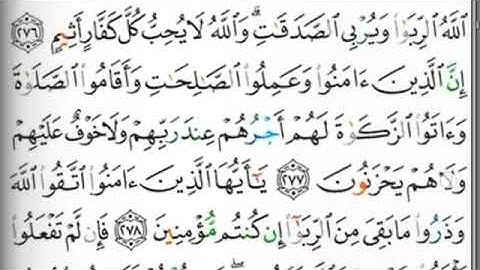 ٱللَّهُ ٱلرِّبَوٰا۟ وَيُرْبِى ٱلصَّدَقَـٰتِ ۗ وَٱللَّهُ لَا يُحِبُّ كُلَّ كَفَّارٍ أَثِيمٍ ٢٧٦
إِنَّ ٱلَّذِينَ ءَامَنُوا۟ وَعَمِلُوا۟ ٱلصَّـٰلِحَـٰتِ وَأَقَامُوا۟ ٱلصَّلَوٰةَ
وَءَاتَوُا۟ ٱلزَّكَوٰةَ لَهُمْ أَجْرُهُمْ عِندَ رَبِّهِمْ وَلَا خَوْفٌ عَلَيْهِمْ
وَلَا هُمْ يَحْزَنُونَ ٢٧٧ يَـٰٓأَيُّهَا ٱلَّذِينَ ءَامَنُوا۟ ٱتَّقُوا۟ ٱللَّهَ
وَذَرُوا۟ مَا بَقِىَ مِنَ ٱلرِّبَوٰٓا۟ إِن كُنتُم مُّؤْمِنِينَ ٢٧٨ فَإِن لَّمْ تَفْعَلُوا۟